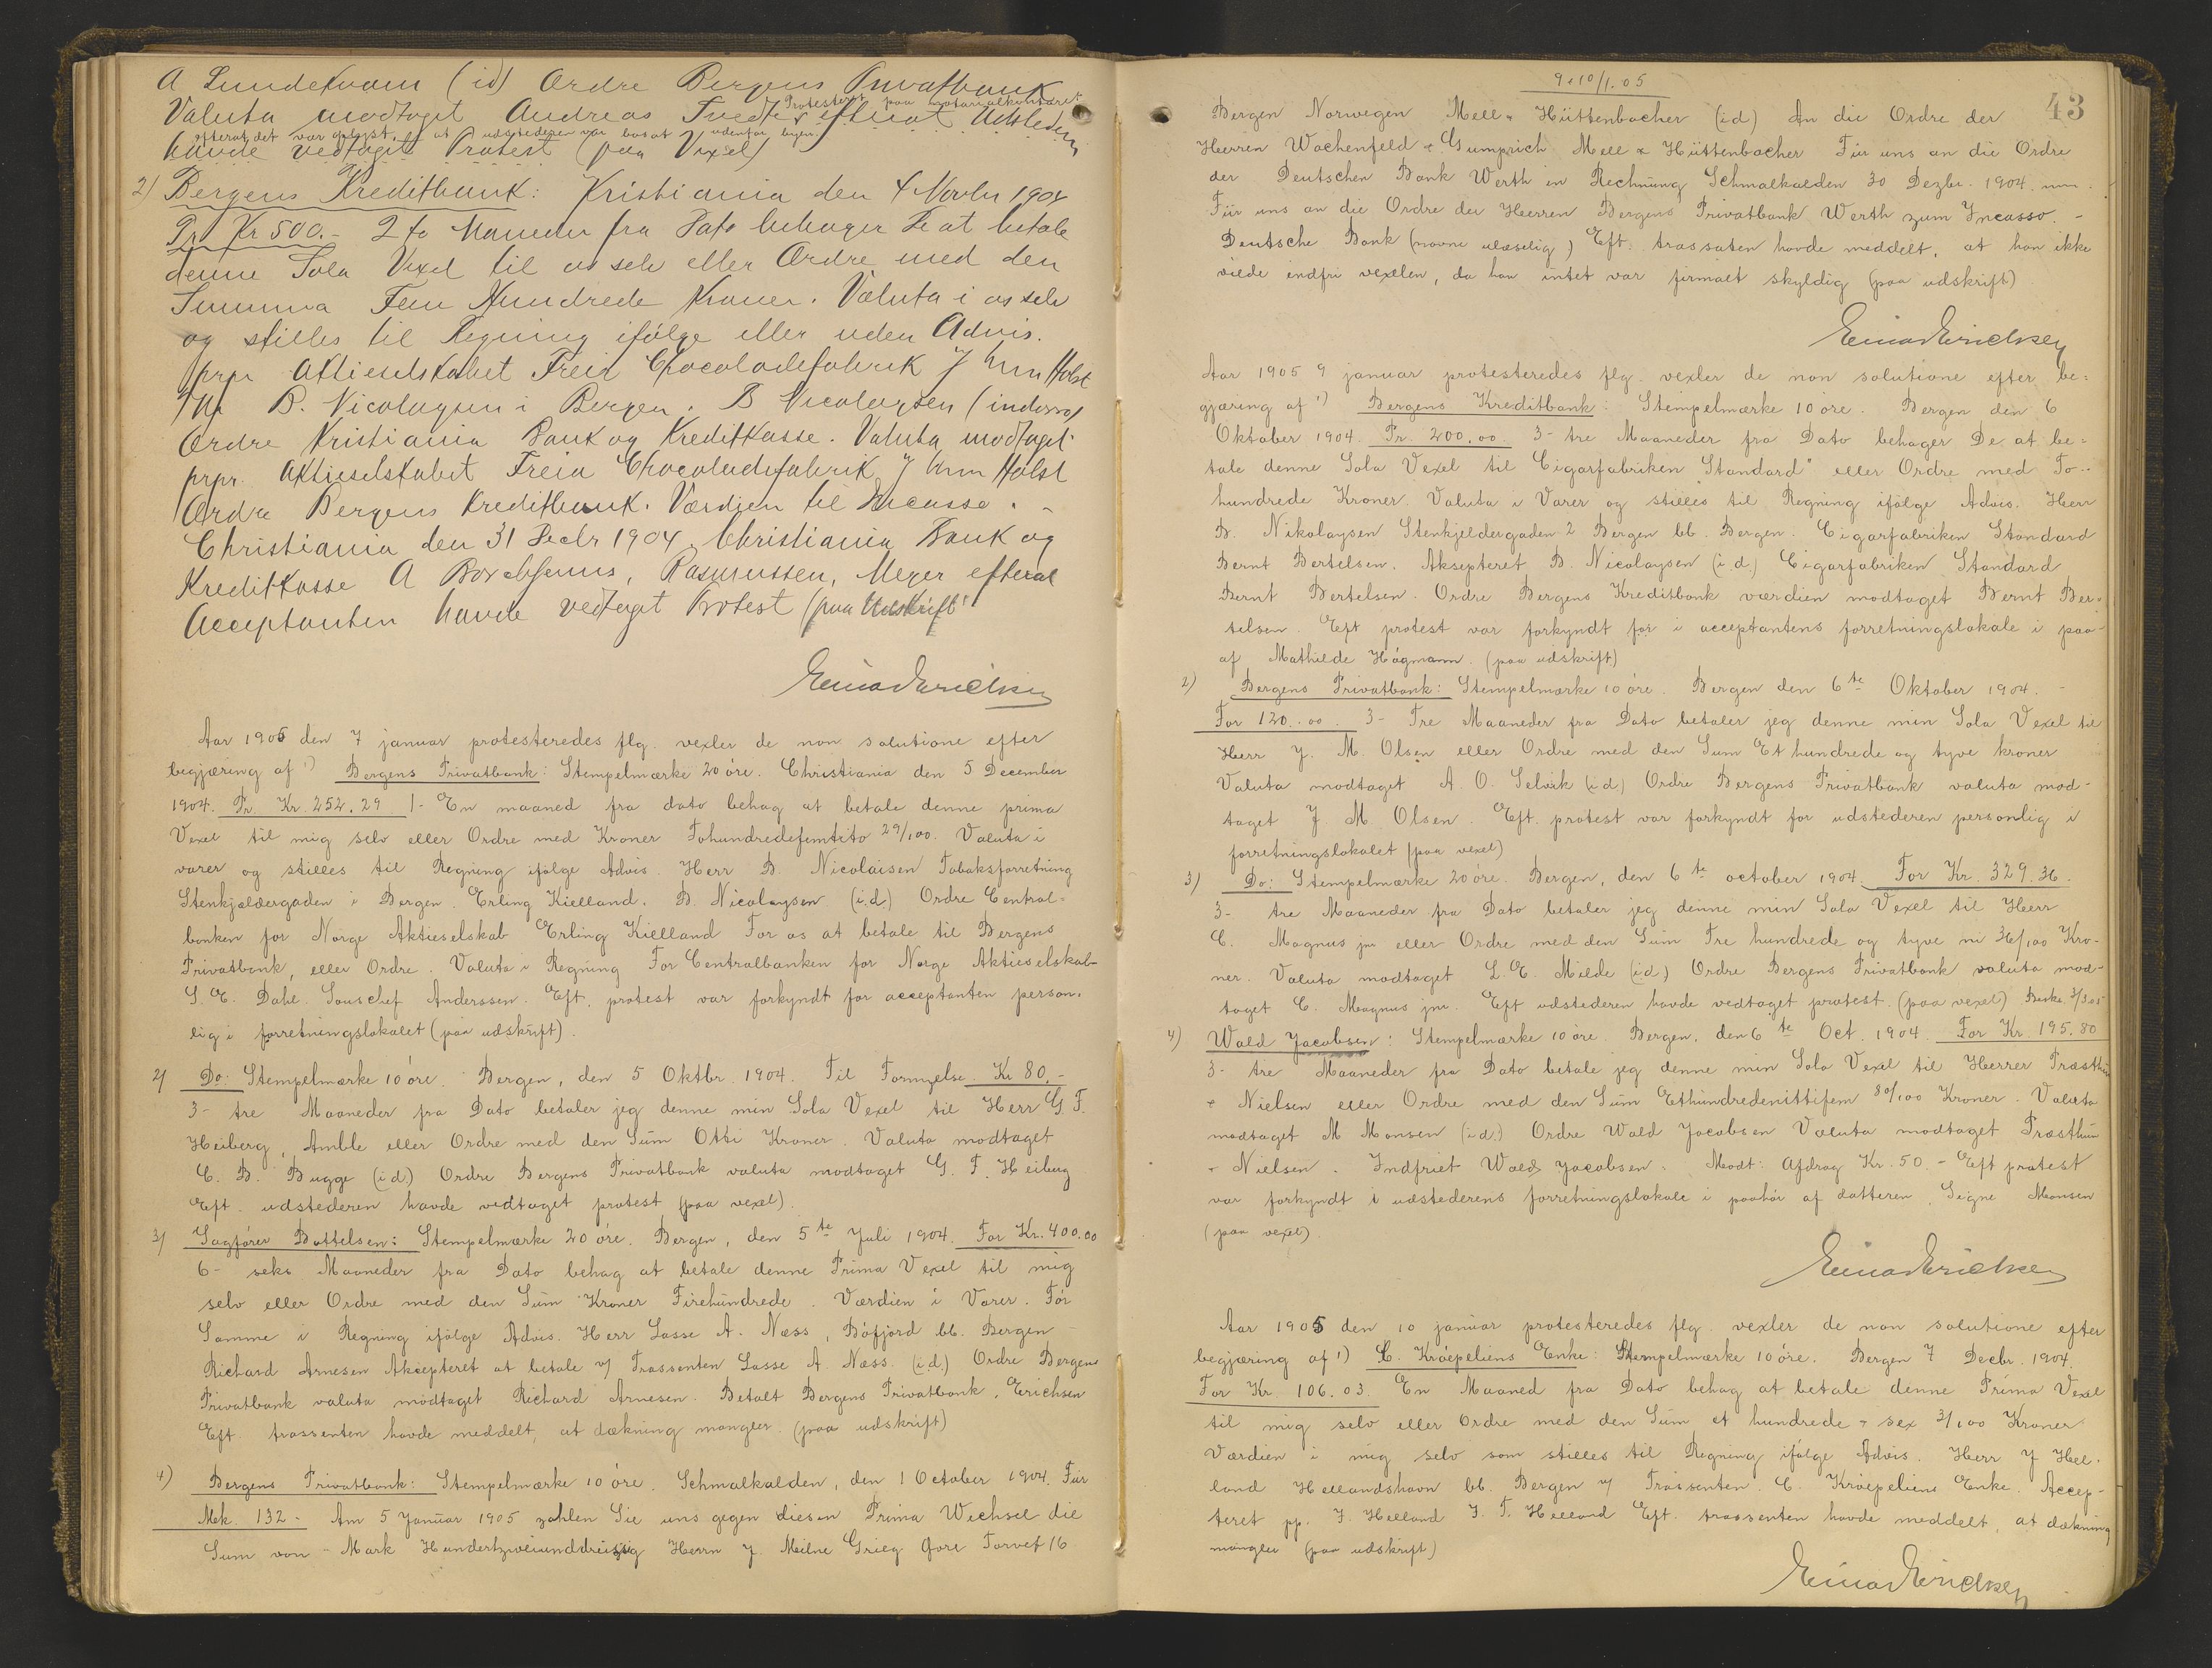 A Lundekvam (id) Ordre Bergens Privatbank
Valuta modtaget Andreas Tvedt efterat Udstederen
Protesteret paa notarialkontoret
efterat det var oplyst, at udstederen var bosat udenfor byen.
havde vedtaget Protest (paa Vexel)
2) Bergens Kreditbank: Kristiania den 4 Novbr 1904
Pr Kr 500.- 2 to Maaneder fra Dato behager De at betale
denne Sola Vexel til os selv eller Ordre med den
Summa Fem Hundrede Kroner. Valuta i os selv
og stilles til Regning ifølge eller uden Advis.
prpr Aktieselskabet Freia Chocoladefabrik J Holst
B. Nicolaysen i Bergen. B Nicolaysen (indorso)
Ordre Kristiania Bank og Kreditkasse. Valuta modtaget
prpr. Aktieselskabet Freia Chocoladefabrik J Holst
Ordre Bergens Kreditbank. Værdien til Incasso. -
Christiania den 31 Decbr 1904. Christiania Bank og
Kreditkasse A Rasmussen, Meyer efterat
Acceptanten havde vedtaget Protest (paa Udskrift)
Einar Erichsen
Aar 1905 den 7 januar protesteredes flg. vexler de non solutione efter
begjæring af 1) Bergens Privatbank: Stempelmærke 20 öre. Christiania den 5 December
1904. Pr. Kr. 252.29 1- En maaned fra dato behag at betale denne prima
Vexel til mig selv eller Ordre med Kroner Tohundredefemtito 29/100. Valuta i
varer og stilles til Regning ifølge Advis. Herr B. Nicolaisen Tobaksforretning
Stenkjældergaden i Bergen. Erling Kielland. B. Nicolaysen (i.d.) Ordre Central=
banken for Norge Aktieselskab Erling Kielland For os at betale til Bergens
Privatbank, eller Ordre. Valuta i Regning For Centralbanken for Norge Aktieselskab
S. E. Dahl. Souschef Anderssen. Eft. protest var forkyndt for acceptanten person-
lig i forretningslokalet (paa udskrift).
2) Do: Stempelmærke 10 öre. Bergen, den 5 Oktbr. 1904. Til Fornyelse. Kr 80.-
3- tre Maaneder fra Dato betaler jeg denne min Sola Vexel til Herr G. F.
Heiberg, Amble eller Ordre med den Sum Otti Kroner. Valuta modtaget
C. B. Bugge (i.d.) Ordre Bergens Privatbank valuta modtaget G. F. Heiberg
Eft. udstederen havde vedtaget protest (paa vexel).
3) Sagfører Bottelsen: Stempelmærke 20 öre. Bergen, den 5te Juli 1904. For Kr. 400.00
6- seks Maaneder fra Dato behag at betale denne Prima Vexel til mig
selv eller Ordre med den Sum Kroner Firehundrede. Værdien i Varer. Før
Samme i Regning ifølge Advis. Herr Lasse A. Næss, Böfjord bb. Bergen
Richard Arnesen Akcepteret at betale v/ Trassenten Lasse A. Næss. (i.d.) Ordre Bergens
Privatbank valuta modtaget Richard Arnesen. Betalt Bergens Privatbank, Erichsen
Eft. trassenten havde meddelt, at dækning mangler. (paa udskrift)
4) Bergens Privatbank: Stempelmærke 10 öre. Schmalkalden, den 1 October 1904. Für
Mek. 132- Am 5 Januar 1905 zahlen Sie uns gegen diesen Prima Wechsel die
Sum von Mark Hundertzweiunddreisig Herrn J. Milne Grieg Övre Torvet 16
9 & 10/1.05
43
Bergen Norwegen Mell & Hüttenbacher (i.d) An die Ordre der
Herren Wachenfeld & Gumprich Mell & Hüttenbacher Für uns an die Ordre
der Deutschen Bank Werth in Rechnung Schmalkalden 30 Dezbr. 1904
Für uns an die Ordre der Herren Bergens Privatbank Werth zum Incasso. -
Deutsche Bank (navne ulæselig) Eft. trassaten havde meddelt, at han ikke
vilde indfri vexelen, da han intet var firmaet skyldig (paa udskrift)
Einar Erichsen
Aar 1905 9 januar protesteredes flg. vexler de non solutione efter be=
gjæring af 1) Bergens Kreditbank: Stempelmærke 10 öre. Bergen den 6
Oktober 1904. Pr. 200.00 3- tre Maaneder fra Dato behager De at be=
tale denne Sola Vexel til Cigarfabriken "Standard" eller Ordre med To-
hundrede Kroner. Valuta i Varer og stilles til Regning ifølge Advis. Herr
B. Nikolaysen Stenkjeldergaden 2 Bergen bb. Bergen. Cigarfabriken Standard
Bernt Bertelsen. Aksepteret B. Nicolaysen (i.d.) Cigarfabriken Standard
Bernt Bertelsen. Ordre Bergens Kreditbank værdien modtaget Bernt Ber-
telsen. Eft protest var forkyndt for i acceptantens forretningslokale i paa-
af Mathilde Hágmann. (paa udskrift)
2) Bergens Privatbank: Stempelmærke 10 öre. Bergen den 6te Oktober 1904. -
For 120.00. 3- Tre Maaneder fra Dato betaler jeg denne min Sola Vexel til
Herr J. M. Olsen eller Ordre med den Sum Et hundrede og tyve kroner
Valuta modtaget A. O. Selvik (i.d) Ordre Bergens Privatbank valuta mod-
taget J. M. Olsen. Eft. protest var forkyndt for udstederen personlig i
forretningslokalet (paa vexel)
3) Do: Stempelmærke 20 öre. Bergen, den 6te october 1904. For Kr. 329.36.
3- tre Maaneder fra Dato betaler jeg denne min Sola Vexel til Herr
C. Magnus jnr eller Ordre med den Sum Tre hundrede og tyve ni 36/100 Kro-
ner. Valuta modtaget L. E. Milde (i.d.) Ordre Bergens Privatbank valuta mod-
taget C. Magnus jnr. Eft udstederen havde vedtaget protest. (paa vexel)
4) Wald Jacobsen: Stempelmærke 10 öre. Bergen, den 6te Oct. 1904. For Kr. 195.80
3- tre Maaneder fra Dato betale jeg denne min Sola Vexel til Herrer Træsthun
& Nielsen eller Ordre med den Sum Ethundrednittifem 80/100 Kroner. Valuta
modtaget M Monsen (i.d.) Ordre Wald Jacobsen Valuta modtaget Træsthun
& Nielsen. Indfriet Wald Jacobsen. Modt. Afdrag Kr. 50.- Eft protest
var forkyndt i udstederens forretningslokale i paahør af datteren Signe Monsen
(paa vexel).
Einar Erichsen
Aar 1905 den 10 januar protesteredes flg. vexler de non solutione efter
begjæring af 1) C. Kröepeliens Enke: Stempelmærke 10 öre. Bergen 7 Decbr. 1904.
For Kr. 106.03. En Maaned fra Dato behag at betale denne Prima Vexel
til mig selv eller Ordre med den Sum et hundrede & sex 3/100 Kroner
Værdien i mig selv som stilles til Regning ifølge Advis. Herr J Hel-
land Hellandshavn bb. Bergen v/ Trassenten. C. Kröepeliens Enke. Accep-
teret pp. J. Helland J. T. Helland Eft. trassenten havde meddelt, at dækning
mangler (paa udskrift)
Einar Erichsen